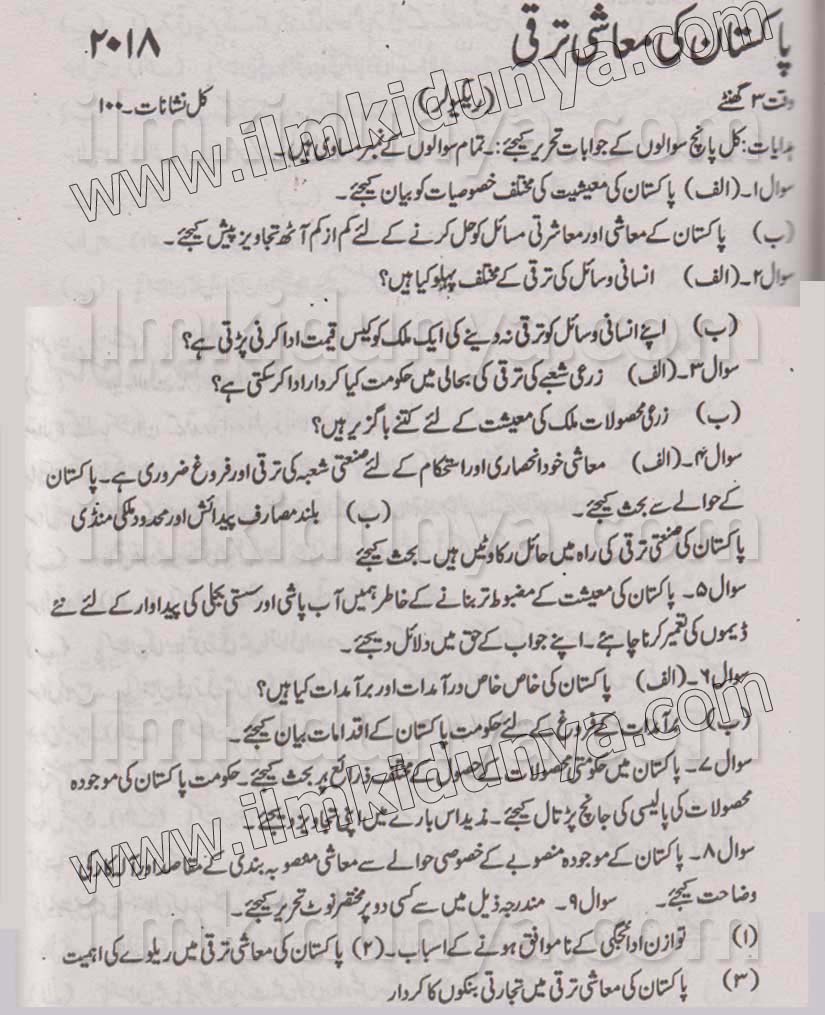 پاکستان کی معاشی ترقی ۲۰۱۸
وقت ۳ گھنٹے (ریگولر) کل نشانات۔۱۰۰
ہدایات: کل پانچ سوالوں کے جوابات تحریر کیجئے:۔ تمام سوالوں کے نمبر مساوی ہیں۔
سوال ۱۔ (الف) پاکستان کی معیشیت کی مختلف خصوصیات کو بیان کیجئے۔
(ب) پاکستان کے معاشی اور معاشرتی مسائل کو حل کرنے کے لئے کم از کم آٹھ تجاویز پیش کیجئے۔
سوال ۲۔ (الف) انسانی وسائل کی ترقی کے مختلف پہلو کیا ہیں؟
(ب) اپنے انسانی وسائل کو ترقی نہ دینے کی ایک ملک کو کیس قیمت ادا کرنی پڑتی ہے؟
سوال ۳۔ (الف) زرعی شعبے کی ترقی کی بحالی میں حکومت کیا کردار ادا کر سکتی ہے؟
(ب) زرعی محصولات ملک کی معیشت کے لئے کتنے باگزیر ہیں؟
سوال ۴۔ (الف) معاشی خود انحصاری اور استحکام کے لئے صنعتی شعبہ کی ترقی اور فروغ ضروری ہے۔ پاکستان
کے حوالے سے بحث کیجئے۔ (ب) بلند مصارف پیدائش اور محدود ملکی منڈی
پاکستان کی صنعتی ترقی کی راہ میں حائل رکاوٹیں ہیں۔ بحث کیجئے
سوال ۵۔ پاکستان کی معیشت کے مضبوط تر بنانے کے خاطر ہمیں آب پاشی اور سستی بجلی کی پیداوار کے لئے نئے
ڈیموں کی تعمیر کرنا چاہئے۔ اپنے جواب کے حق میں دلائل دیجئے۔
سوال ۶۔ (الف) پاکستان کی خاص خاص درآمدات اور برآمدات کیا ہیں؟
(ب) برآمدات کے فروغ کے لئے حکومت پاکستان کے اقدامات بیان کیجئے۔
سوال ۷۔ پاکستان میں حکومتی محصولات کے حصول کے مختلف ذرائع پر بحث کیجئے۔ حکومت پاکستان کی موجودہ
محصولات کی پالیسی کی جانچ پڑتال کیجئے۔ نذید اس بارے میں اپنی تجاویز دیجئے۔
سوال ۸۔ پاکستان کے موجودہ منصوبے کے خصوصی حوالے سے معاشی منصوبہ بندی کے مقاصد اور آلہ کار کی
وضاحت کیجئے۔ سوال ۹۔ مندرجہ ذیل میں سے کسی دو پر مختصر نوٹ تحریر کیجئے۔
(۱) توازن ادائیگی کے ناموافق ہونے کے اسباب۔ (۲) پاکستان کی معاشی ترقی میں ریلوے کی اہمیت
(۳) پاکستان کی معاشی ترقی میں تجارتی بنکوں کا کردار
www.ilmkidunya.com
www.ilmkidunya.com
ilmkidunya.com
ilmkidunya.com
ilmkidunya.com
ilmkidunya.com
ilmkidunya.com